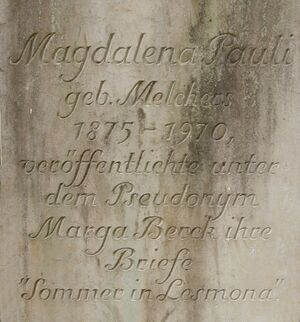 Magdalena Pauli
geb. Melchers
1875 - 1970,
veröffentlichte unter
dem Pseudonym
Marga Berck ihre
Briefe
"Sommer in Lesmona".